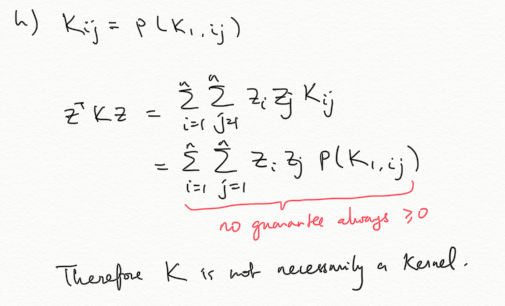 h) Kij = p(K1,ij)
zᵀKz = Σⁿi=1 Σⁿj=1 zi zj Kij
= Σⁿi=1 Σⁿj=1 zi zj p(K1,ij)
no guarantee always ≥0
Therefore K is not necessarily a kernel.